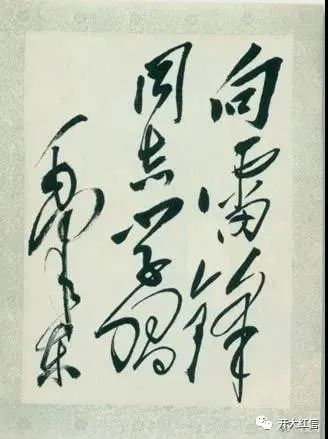 向雷锋
同志学习
毛泽东
开大红信